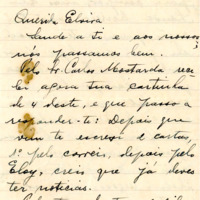 Querida Eloira
Saude a ti e aos nossos,
nós passamos bem.
Pelo Sr. Carlos Mostarda rece-
bi agora sua cartinha
de 4 deste, e que passo a
responder-te: Depois que
vim te escrevi 2 cartas,
1ª pelo correio, depois pelo
Eloy, creio que já deves
ter noticias.